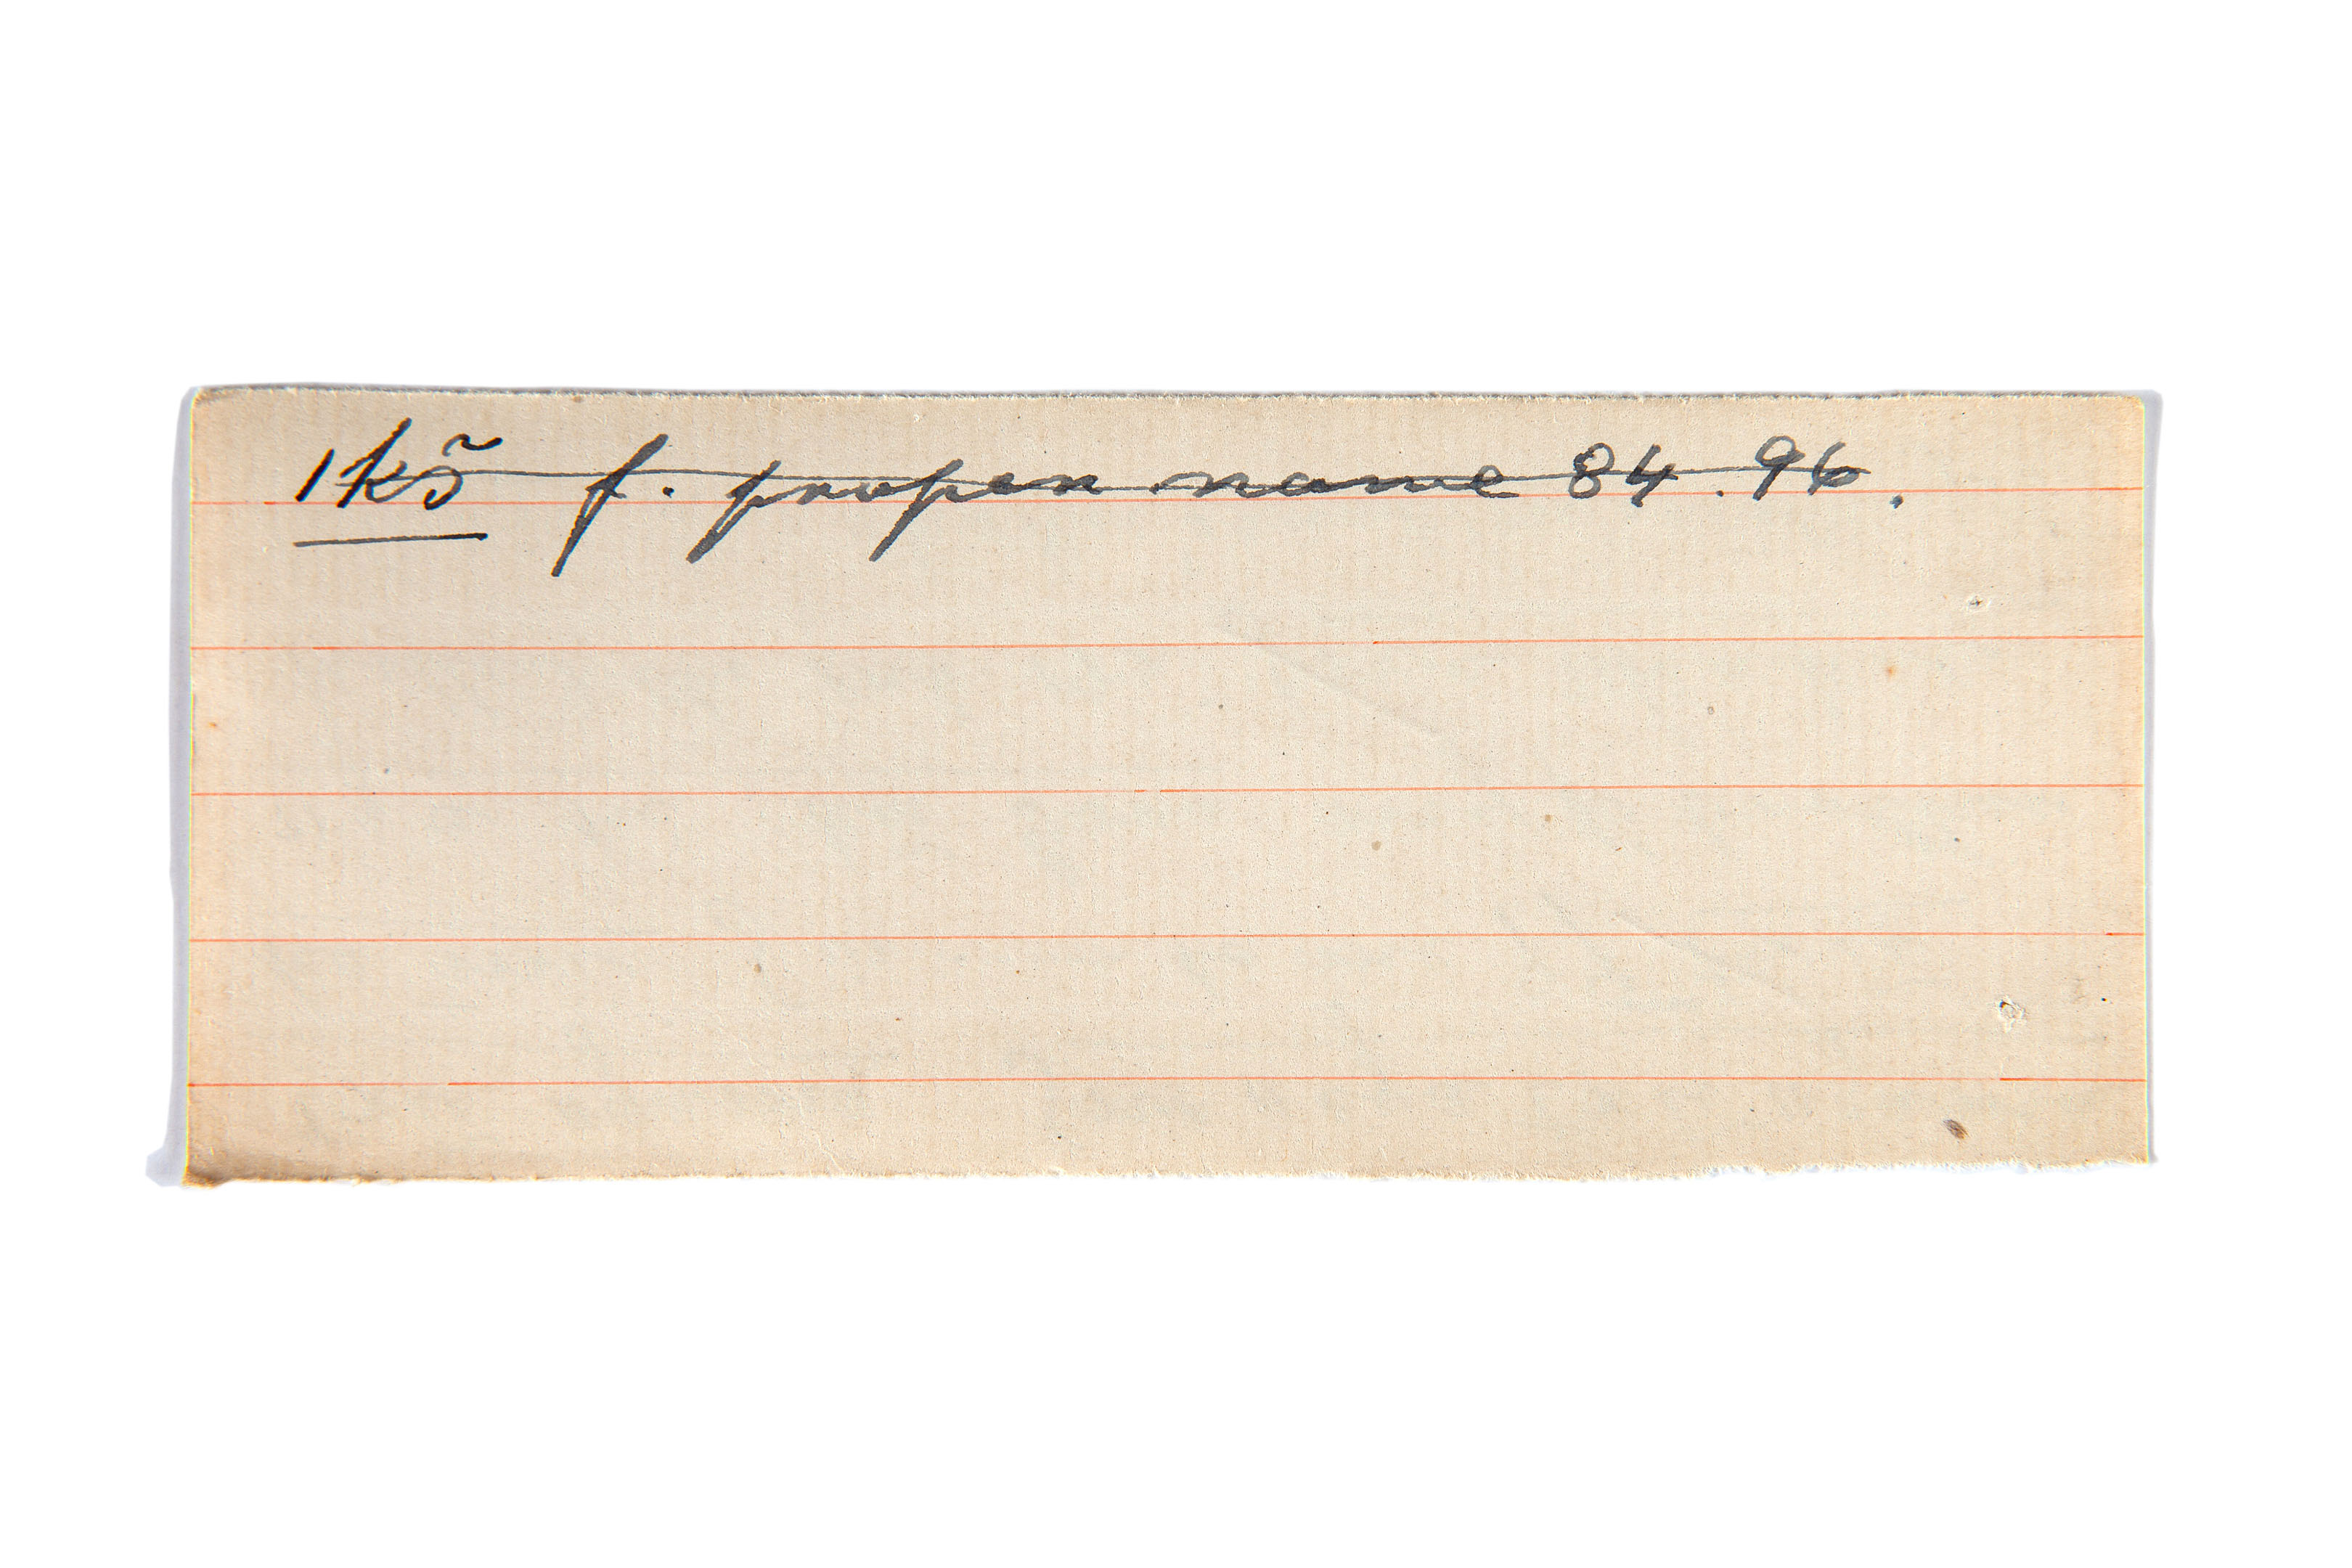 ıkš f. proper name 84.96.